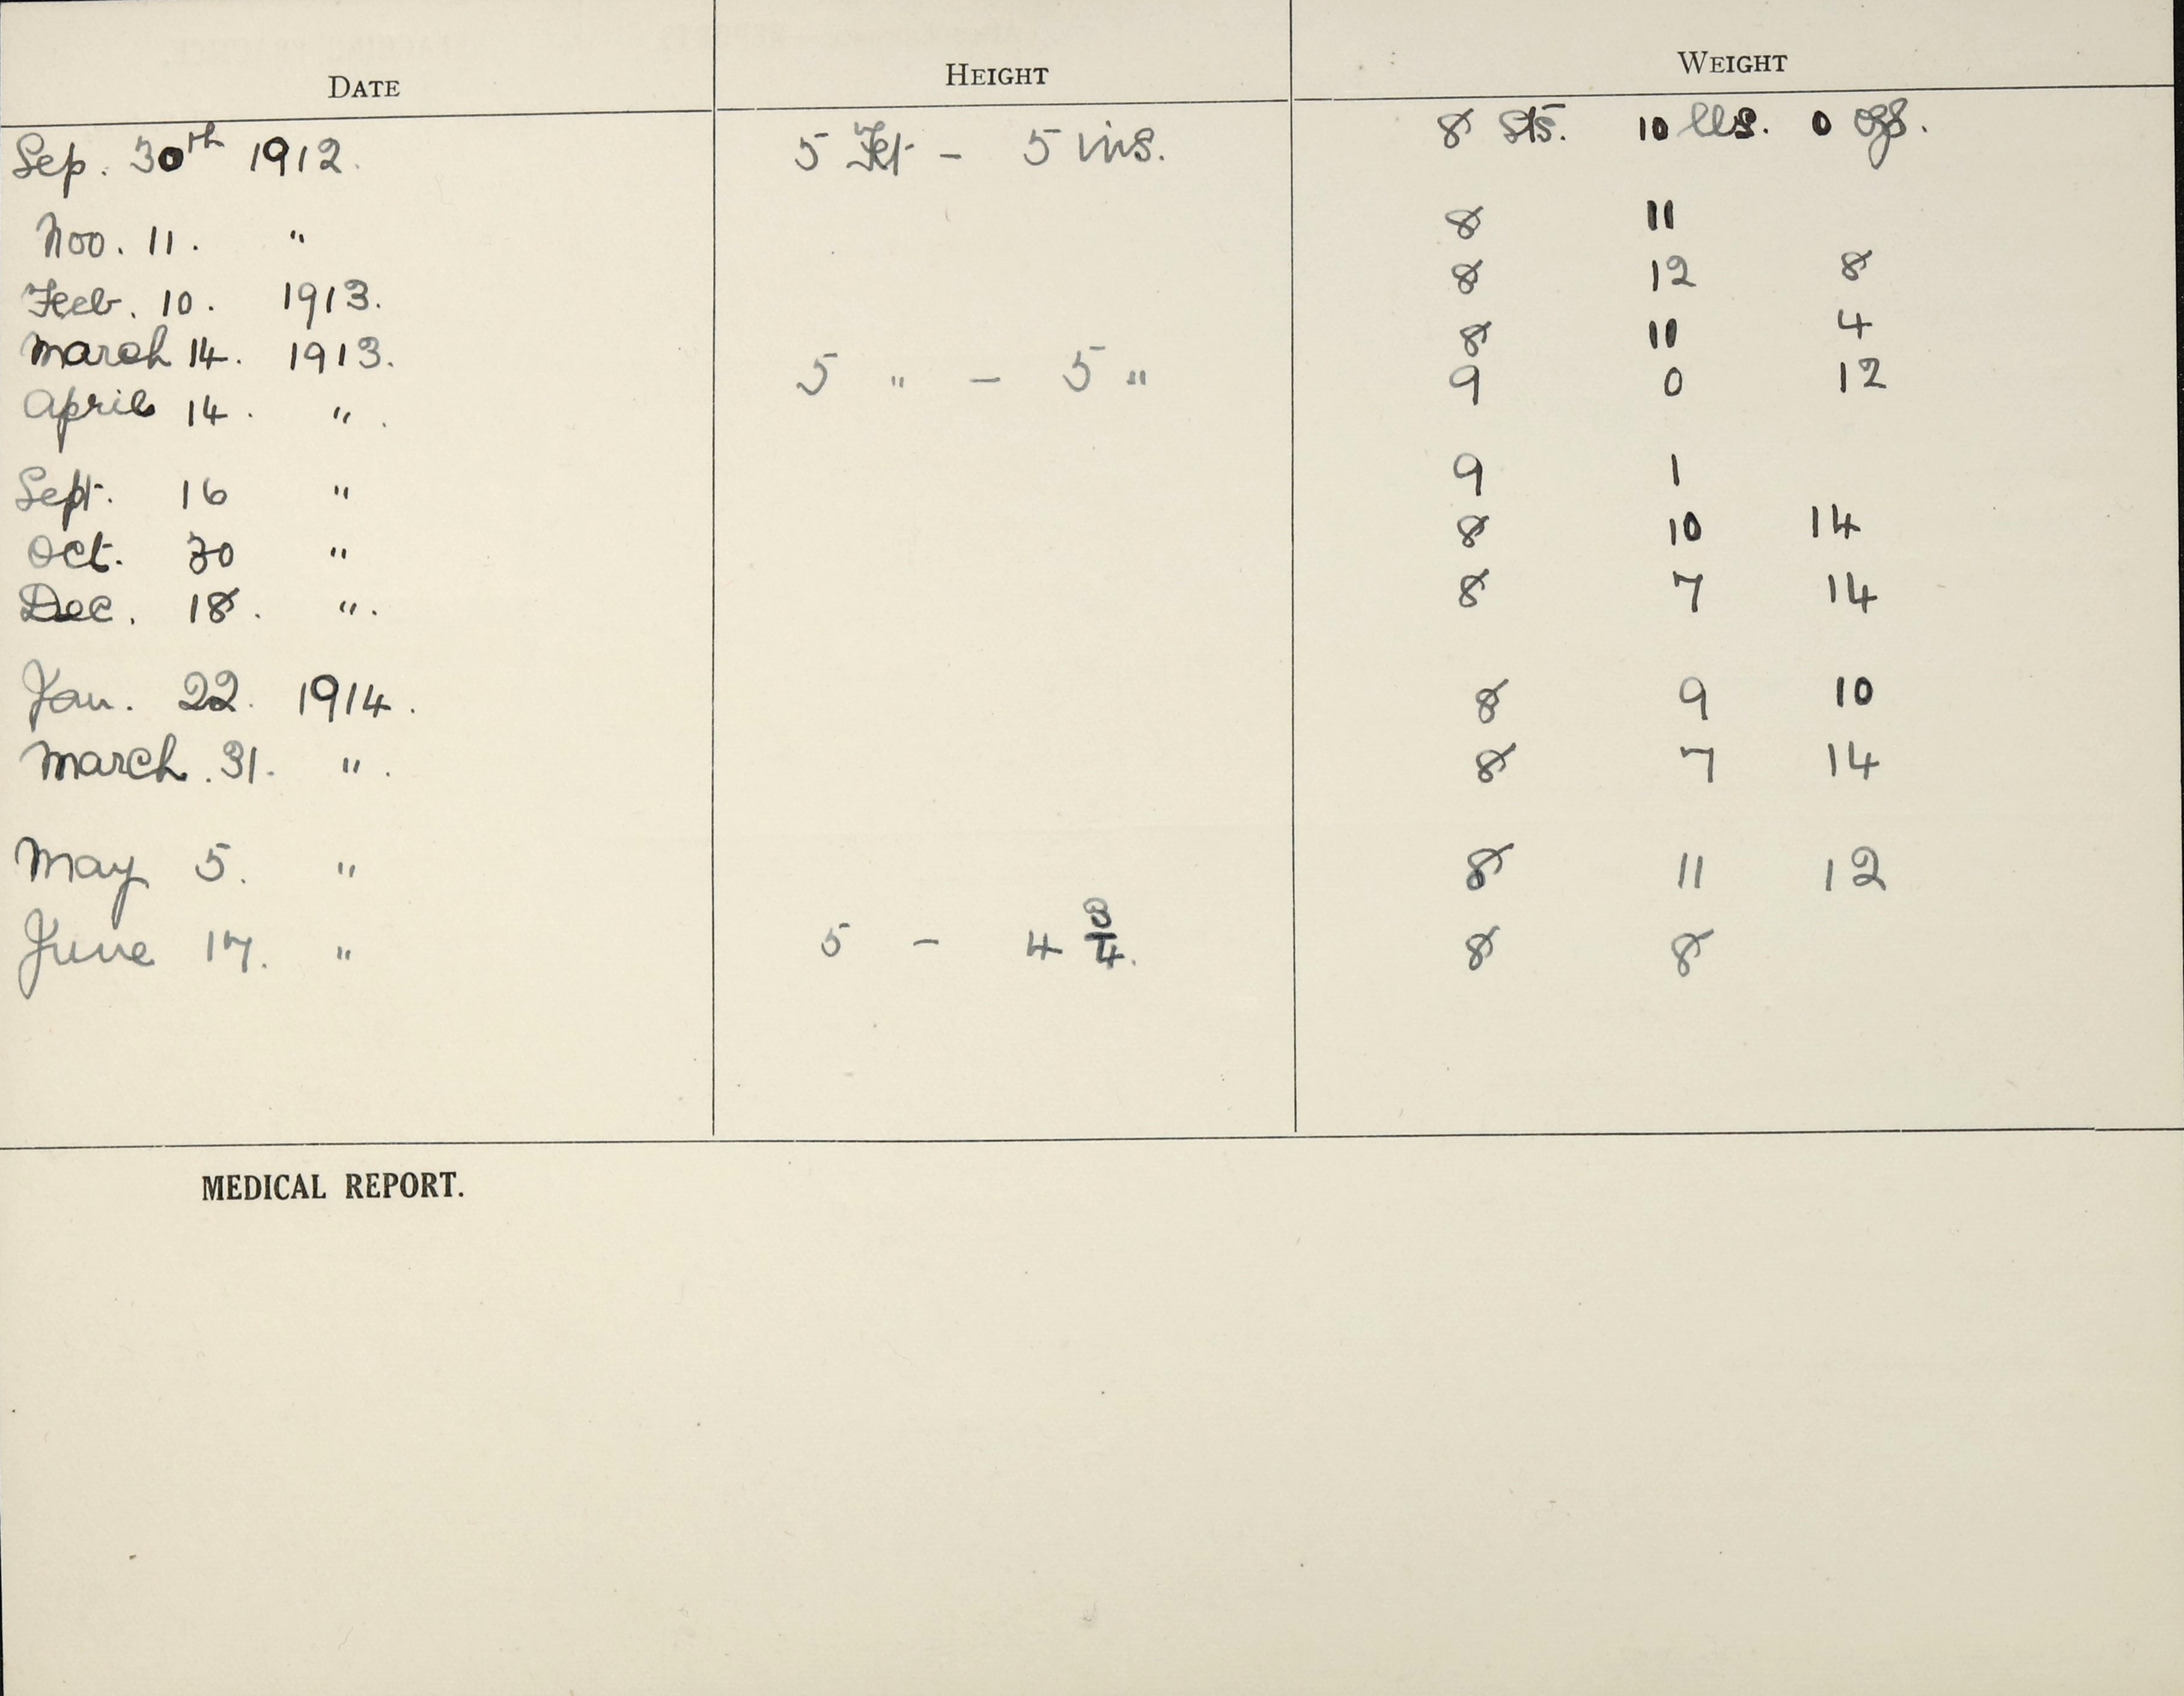 DATE HEIGHT WEIGHT
Sep. 30th 1912. 5 Ft - 5 ins. 8 sts. 10 lbs. 0 ozs.
Nov. 11. " 8 11
Feb. 10. 1913. 8 12 8
March 14. 1913. 8 11 4
April 14. ". 5 " - 5 " 9 0 12
Sept. 16 " 9 1
Oct. 30 " 8 10 14
Dec. 18. ". 8 7 14
Jan. 22. 1914. 8 9 10
March. 31. ". 8 7 14
May 5. " 8 11 12
June 17. " 5 - 4 3/4. 8 8
MEDICAL REPORT.